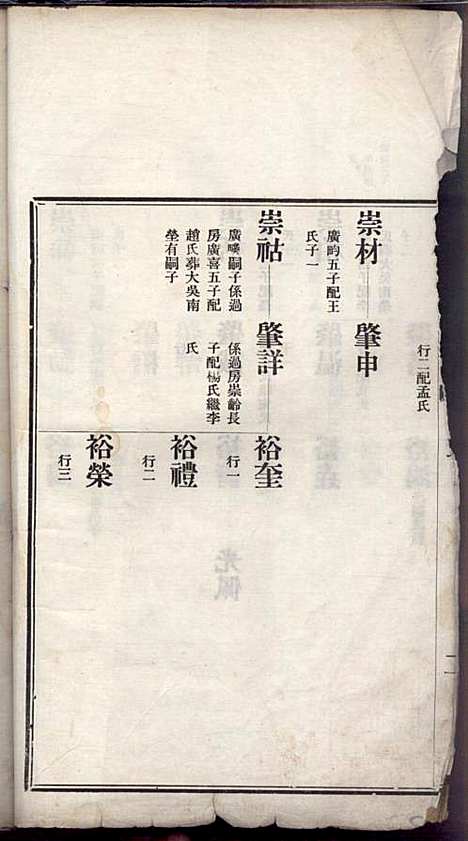 行二配孟氏
崇材
廣畇五子配王
氏子一
肇申
崇祜
廣疄嗣子係過
房廣喜五子配
趙氏葬大吳南
塋有嗣子
肇詳
係過房崇齡長
子配楊氏繼李
氏
裕奎
行一
裕禮
行二
裕榮
行三